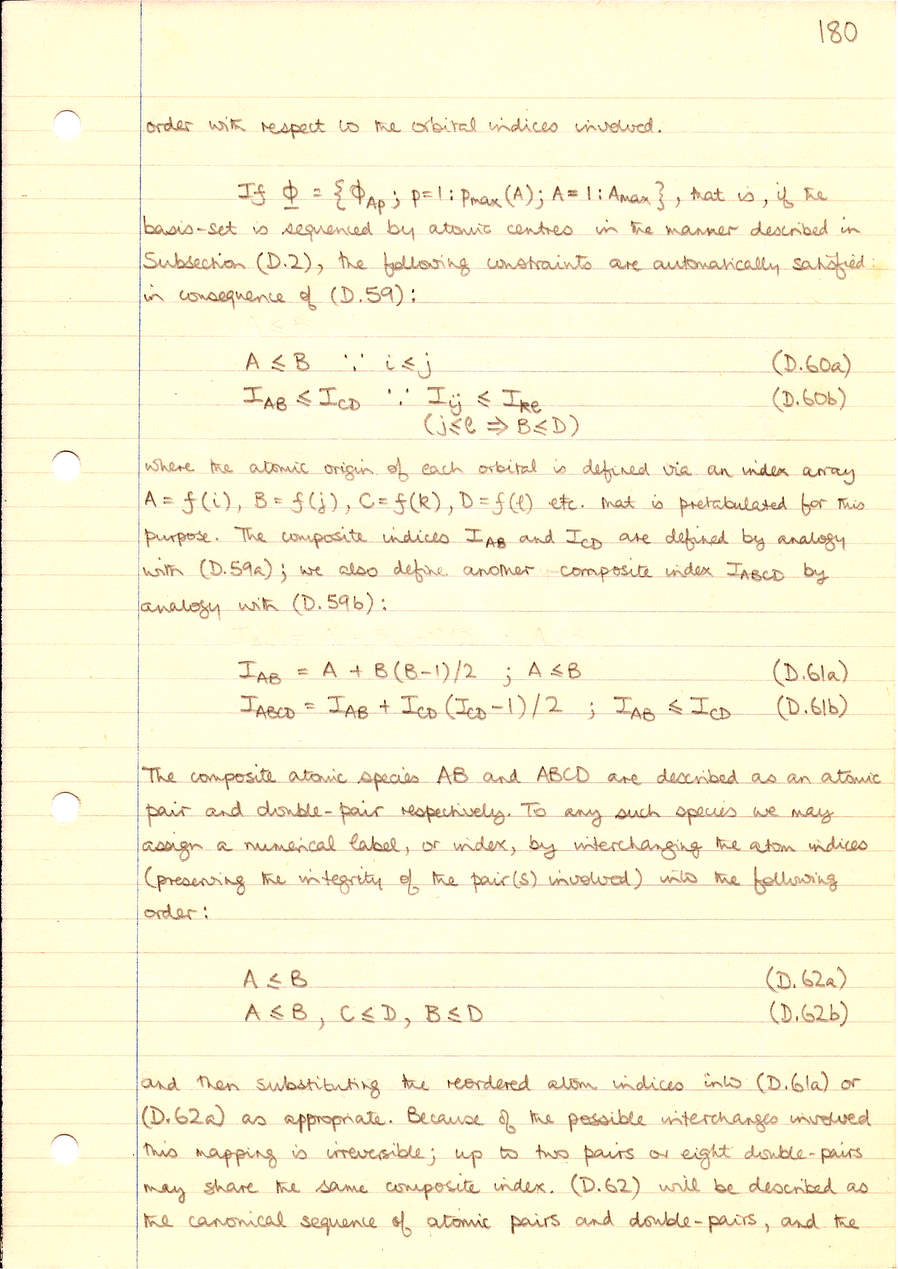 180
order with respect to the orbital indices involved.
If Φ = {ΦAp; p=1:pmax(A); A=1:Amax}, that is, if the
basis-set is sequenced by atomic centres in the manner described in
Subsection (D.2), the following constraints are automatically satisfied
in consequence of (D.59):
A ≤ B ∵ i ≤ j (D.60a)
IAB ≤ ICD ∵ Iij ≤ Ikℓ (D.60b)
(j≤ℓ ⇒ B≤D)
where the atomic origin of each orbital is defined via an index array
A = f(i), B = f(j), C = f(k), D = f(ℓ) etc. that is pretabulated for this
purpose. The composite indices IAB and ICD are defined by analogy
with (D.59a); we also define another composite index IABCD by
analogy with (D.59b):
IAB = A + B(B-1)/2 ; A ≤ B (D.61a)
IABCD = IAB + ICD(ICD-1)/2 ; IAB ≤ ICD (D.61b)
The composite atomic species AB and ABCD are described as an atomic
pair and double-pair respectively. To any such species we may
assign a numerical label, or index, by interchanging the atom indices
(preserving the integrity of the pair(s) involved) into the following
order:
A ≤ B (D.62a)
A ≤ B, C ≤ D, B ≤ D (D.62b)
and then substituting the reordered atom indices into (D.61a) or
(D.62a) as appropriate. Because of the possible interchanges involved
this mapping is irreversible; up to two pairs or eight double-pairs
may share the same composite index. (D.62) will be described as
the canonical sequence of atomic pairs and double-pairs, and the